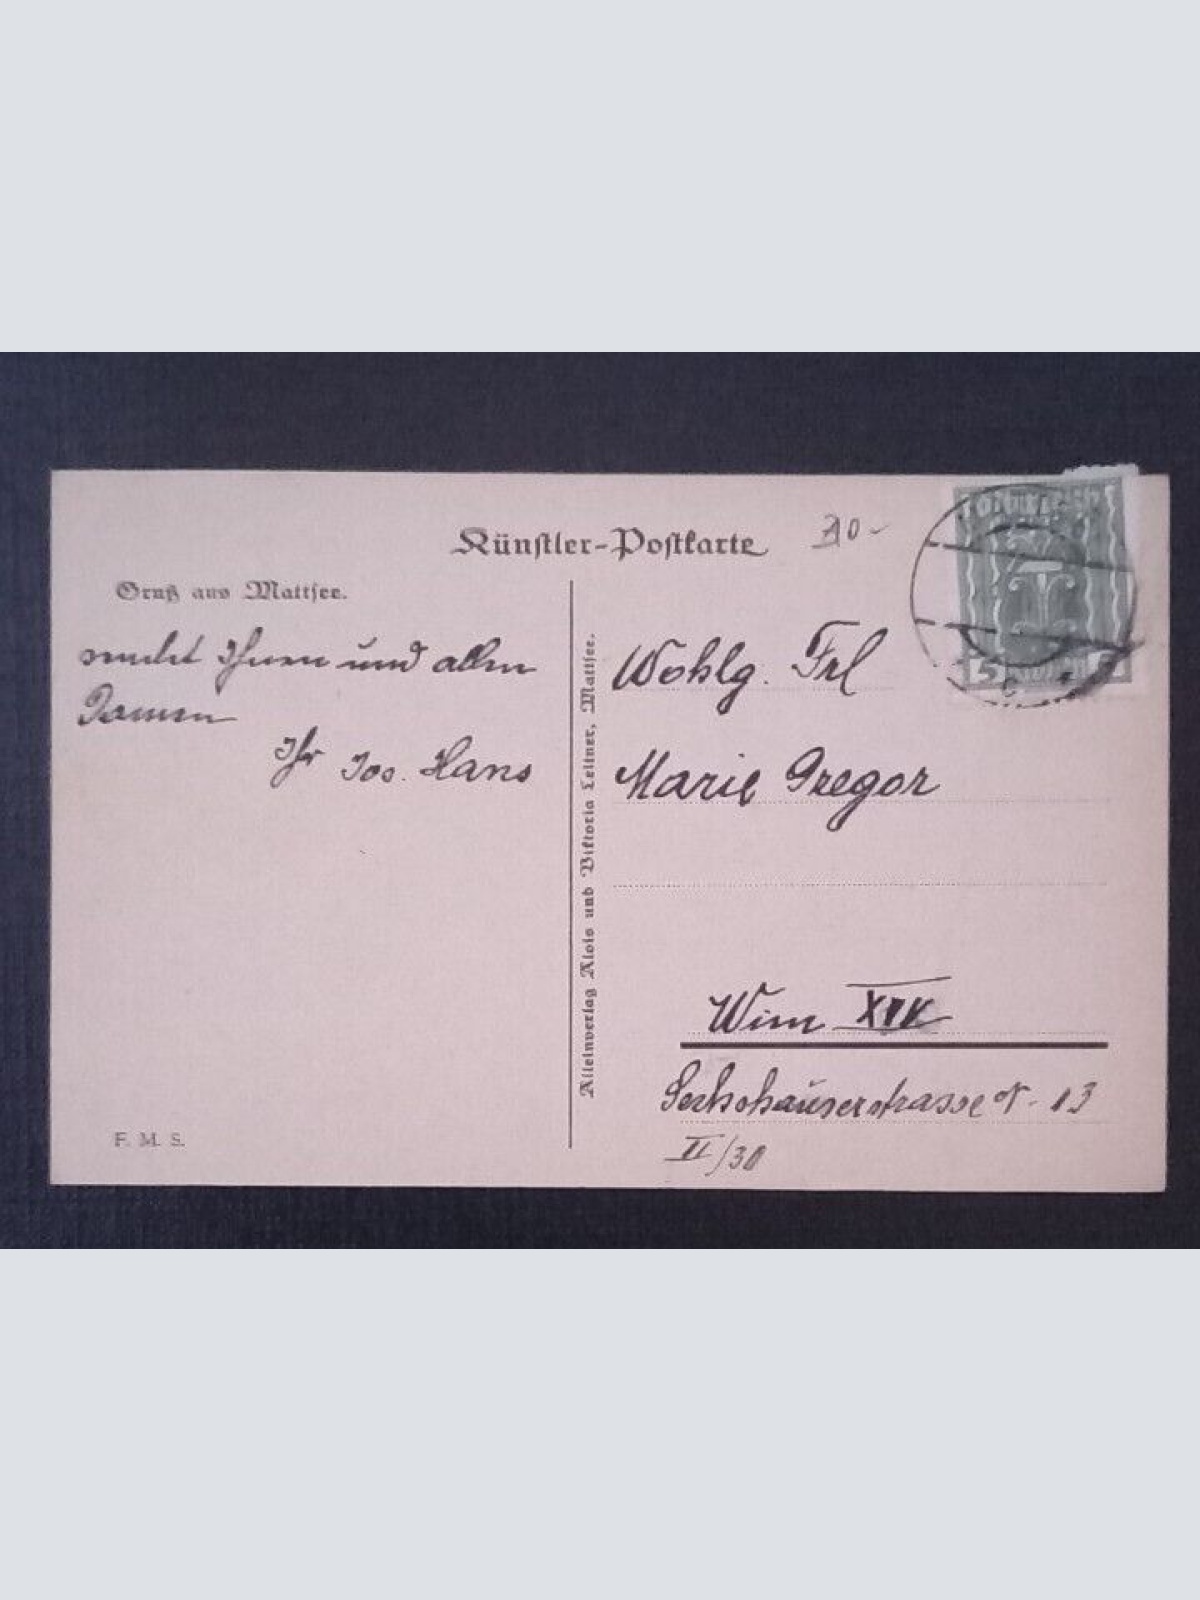 Künstler-Postkarte
Gruß aus Mattsee.
sendet Ihnen und allen
Damen
Ihr Jos. Hans
Alleinverlag Alois und Viktoria Leitner, Mattsee.
Wohlg. Frl
Marie Gregor
Wien XIV
Sechshauserstrasse N. 13
II/30
F. M. S.
5 5